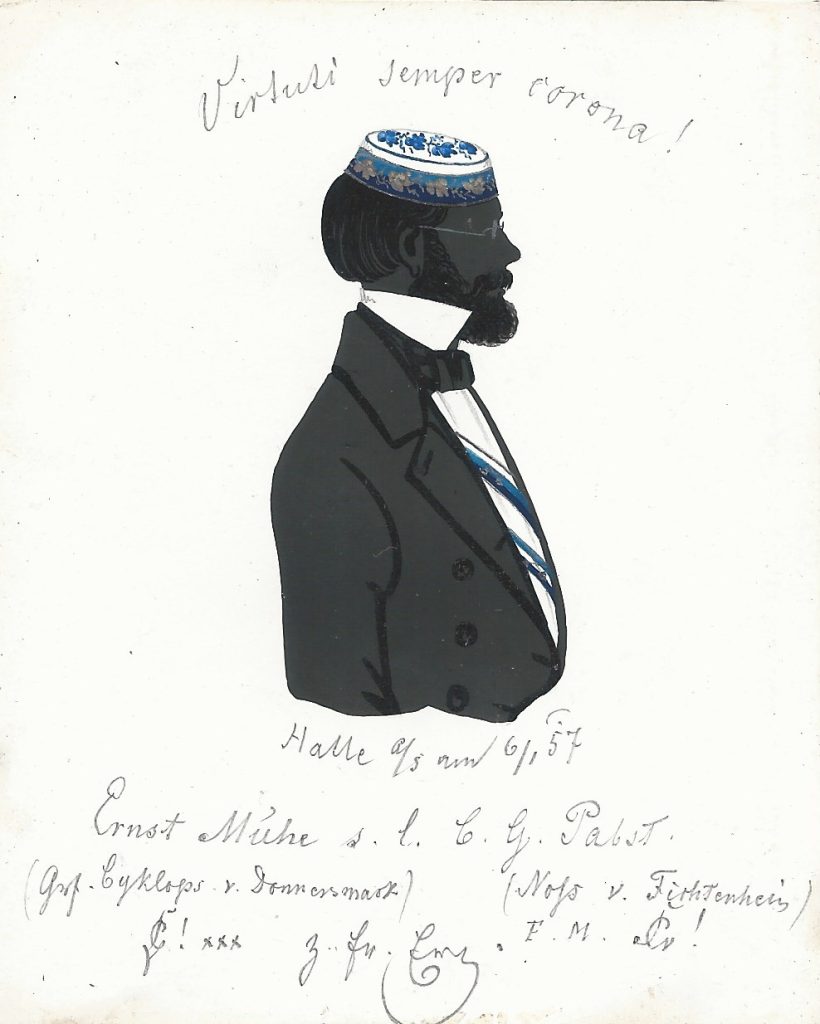 Virtuti semper corona!
Halle a/s am 6/1 57
Ernst Mühe s. l. C. G. Pabst.
(Grf. Cyklops v. Donnersmark) (Noss v. Fichtenhein)
! xxx z. fr. F. M. !